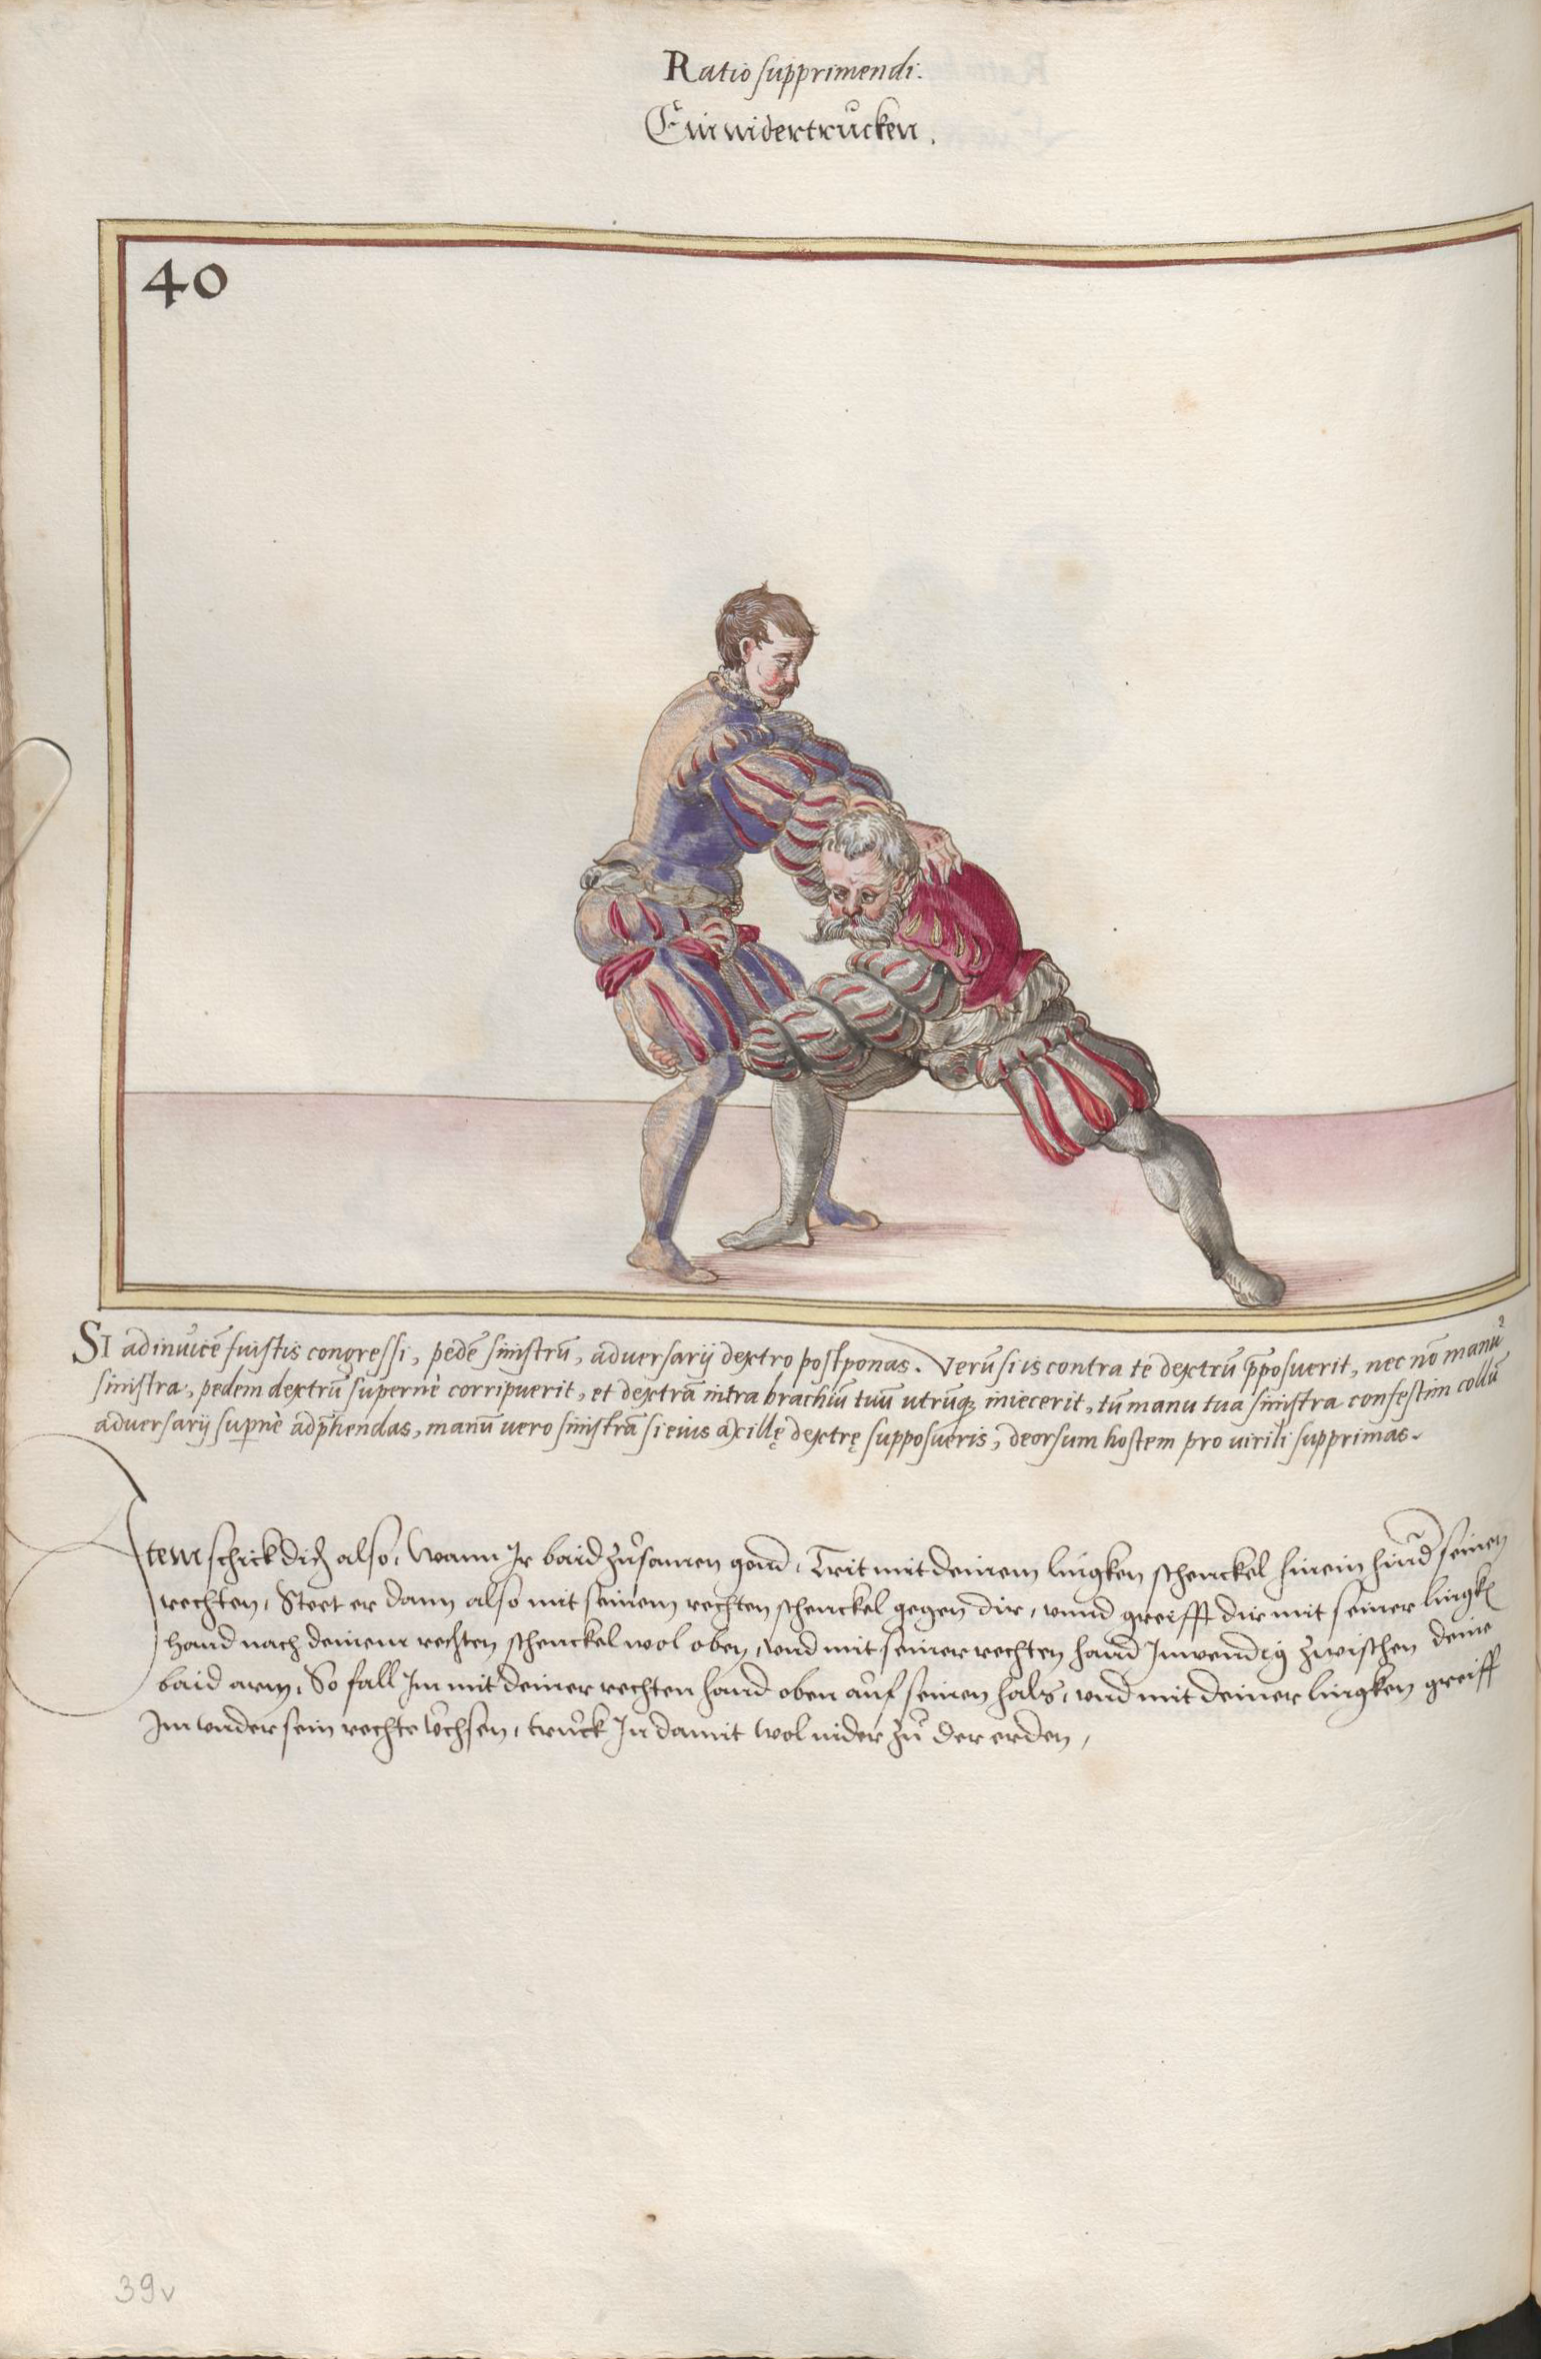 Ratio supprimendi.
Ein nidertrucken.
40
SI adinuicē fuistis congressi, pedē sinistrū, adversarij dextro postponas. Verū si is contra te dextrū p̄posuerit, nec nō manu
sinistra, pedem dextrū supernè corripuerit, et dextrā intra brachiū tuū utrūq; iniecerit, tū manu tua sinistra confestim collū
adversarij supernè adp̄hendas, manū vero sinistrā si eius axillę dextrę supposueris, deorsum hostem pro virili supprimas.
Item schick dich also, Wann Ir baid zůsamen gond, Trit mit deinem lingken schenckel hinein hind seinen
rechten, Steet er dann also mit seinem rechten schenckel gegen dir, vnnd greifft dir mit seiner lingk
hand nach deinem rechten schenckel wol oben, vnd mit seiner rechten hand Inwendig zwischen deine
baid arm, So fall Im mit deiner rechten hand oben auf seinen hals, vnd mit deiner lingken greiff
Im vnder sein rechte ůchsen, truck In damit wol nider zů der erden,
39v